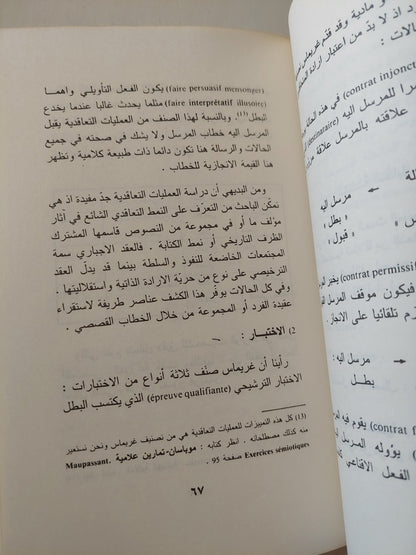 (faire persuasif mensonger) يكون الفعل التأويلي واهما
(faire interprétatif illusoire) مثلما يحدث غالبا عندما يخدع
البطل (13). وبالنسبة لهذا الصنف من العمليات التعاقدية يقبل
المرسل اليه خطاب المرسل ولا يشك في صحته في جميع
الحالات والرسالة هنا تكون دائما ذات طبيعة كلامية وتظهر
هنا القيمة الانجازية للخطاب .
ومن البديهي أن دراسة العمليات التعاقدية جدّ مفيدة اذ هي
تمكّن الباحث من التعرّف على النمط التعاقدي الشائع في آثار
مؤلف ما أو في مجموعة من النصوص قاسمها المشترك
الظرف التاريخي أو نمط الكتابة . فالعقد الاجباري سمة
المجتمعات الخاضعة للنفوذ والسلطة بينما قد يدلّ العقد
الترخيصي على نوع من حريّة الارادة الذاتية واستقلاليتها .
وفي كل الحالات يوفّر هذا الكشف عناصر طريفة لاستقراء
عقيدة الفرد أو المجموعة من خلال الخطاب القصصي .
2) الاختبار :
رأينا أن غريماس صنّف ثلاثة أنواع من الاختبارات :
الاختبار الترشيحي (épreuve qualifiante) الذي يكتسب البطل
(13) كل هذه المميزات للعمليات التعاقدية هي من تصنيف غريماس ونحن نستعير
منه كذلك مصطلحاته . انظر كتابه : موباسان-تمارين علامية Maupassant.
Exercices sémiotiques صفحة 95 .
٦٧
أو مادية وقد قدّم غريماس
اذ لا بدّ من اعتبار ارادة
حالات :
(contrat injonc
في هذه الحالة
للمرسل اليه (destinataire)
علاقته بالمرسل علاقة
مرسل اليه
" بطل "
" قبول "
(contrat permissif
يخبر
فيكون موقف المرسل
تلقائيا على الانجاز
مرسل اليه :
بطل
(contrat f
يقوم فيه
يؤوله المرسل
الفعل الاقناعي